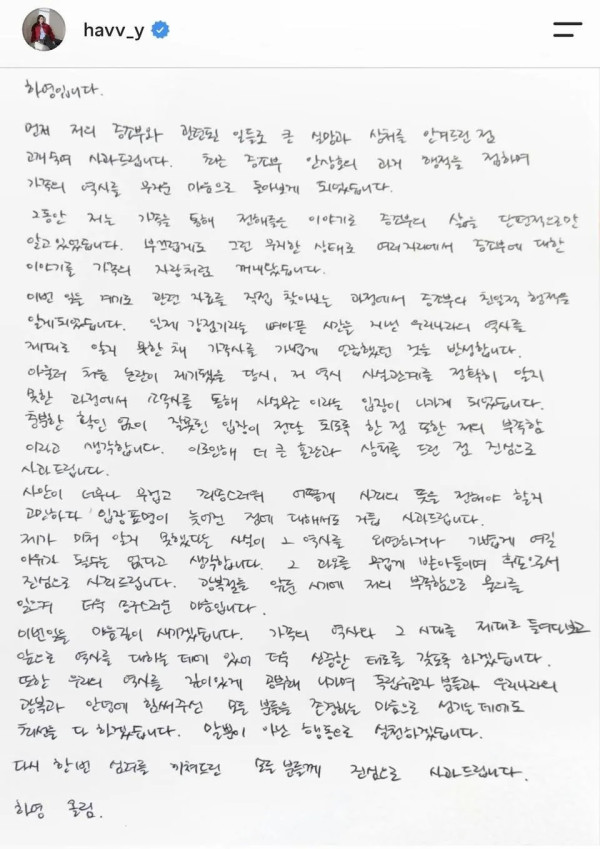 havv_y
하영입니다.
먼저 저의 증조부와 관련된 일들로 큰 실망과 상처를 안겨드린 점
고개숙여 사과드립니다. 최근 증조부 안상호의 과거 행적을 접하며
가족의 역사를 무거운 마음으로 돌아보게 되었습니다.
그동안 저는 가족을 통해 전해들은 이야기로 증조부의 삶을 단편적으로만
알고있었습니다. 부끄럽게도 그런 무지한 상태로 여러자리에서 증조부에 대한
이야기를 가족의 자랑처럼 꺼내왔습니다.
이번 일을 계기로 관련 자료를 직접 찾아보는 과정에서 증조부의 친일적 행적을
알게되었습니다. 일제 강점기라는 뼈아픈 시간을 지나온 우리나라의 역사를
제대로 알지 못한 채 가족사를 가볍게 언급했던 것을 반성합니다.
아울러 처음 논란이 제기됐을 당시, 저 역시 사실관계를 정확히 알지
못한 과정에서 소속사를 통해 사실무근 이라는 입장이 나가게 되었습니다.
충분한 확인 없이 잘못된 입장이 전달 되도록 한 점 또한 저의 부족함
이라고 생각합니다. 이로인해 더 큰 혼란과 상처를 드린 점 진심으로
사과드립니다.
사안이 너무나 무겁고 죄송스러워 어떻게 사죄의 뜻을 전해야 할지
고민하다 입장표명이 늦어진 점에 대해서도 거듭 사과드립니다.
제가 미처 알지 못했다는 사실이 그 역사를 외면하거나 가볍게 여길
이유가 될수는 없다고 생각합니다. 그 과오를 무겁게 받아들이며 후손으로서
진심으로 사죄드립니다. 광복절을 앞둔 시기에 저의 부족함으로 물의를
일으켜 더욱 죄송스러운 마음입니다.
이번일을 마음깊이 새기겠습니다. 가족의 역사와 그 시대를 제대로 들여다보고
앞으로 역사를 대하는 데에 있어 더욱 신중한 태도를 갖도록 하겠습니다.
또한 우리의 역사를 깊이있게 공부해 나가며 독립유공자 분들과 우리나라의
광복과 안녕에 힘써주신 모든 분들을 존경하는 마음으로 섬기는데에도
최선을 다 하겠습니다. 말뿐이 아닌 행동으로 실천하겠습니다.
다시 한번 심려를 끼쳐드린 모든 분들께 진심으로 사과드립니다.
하영 올림.